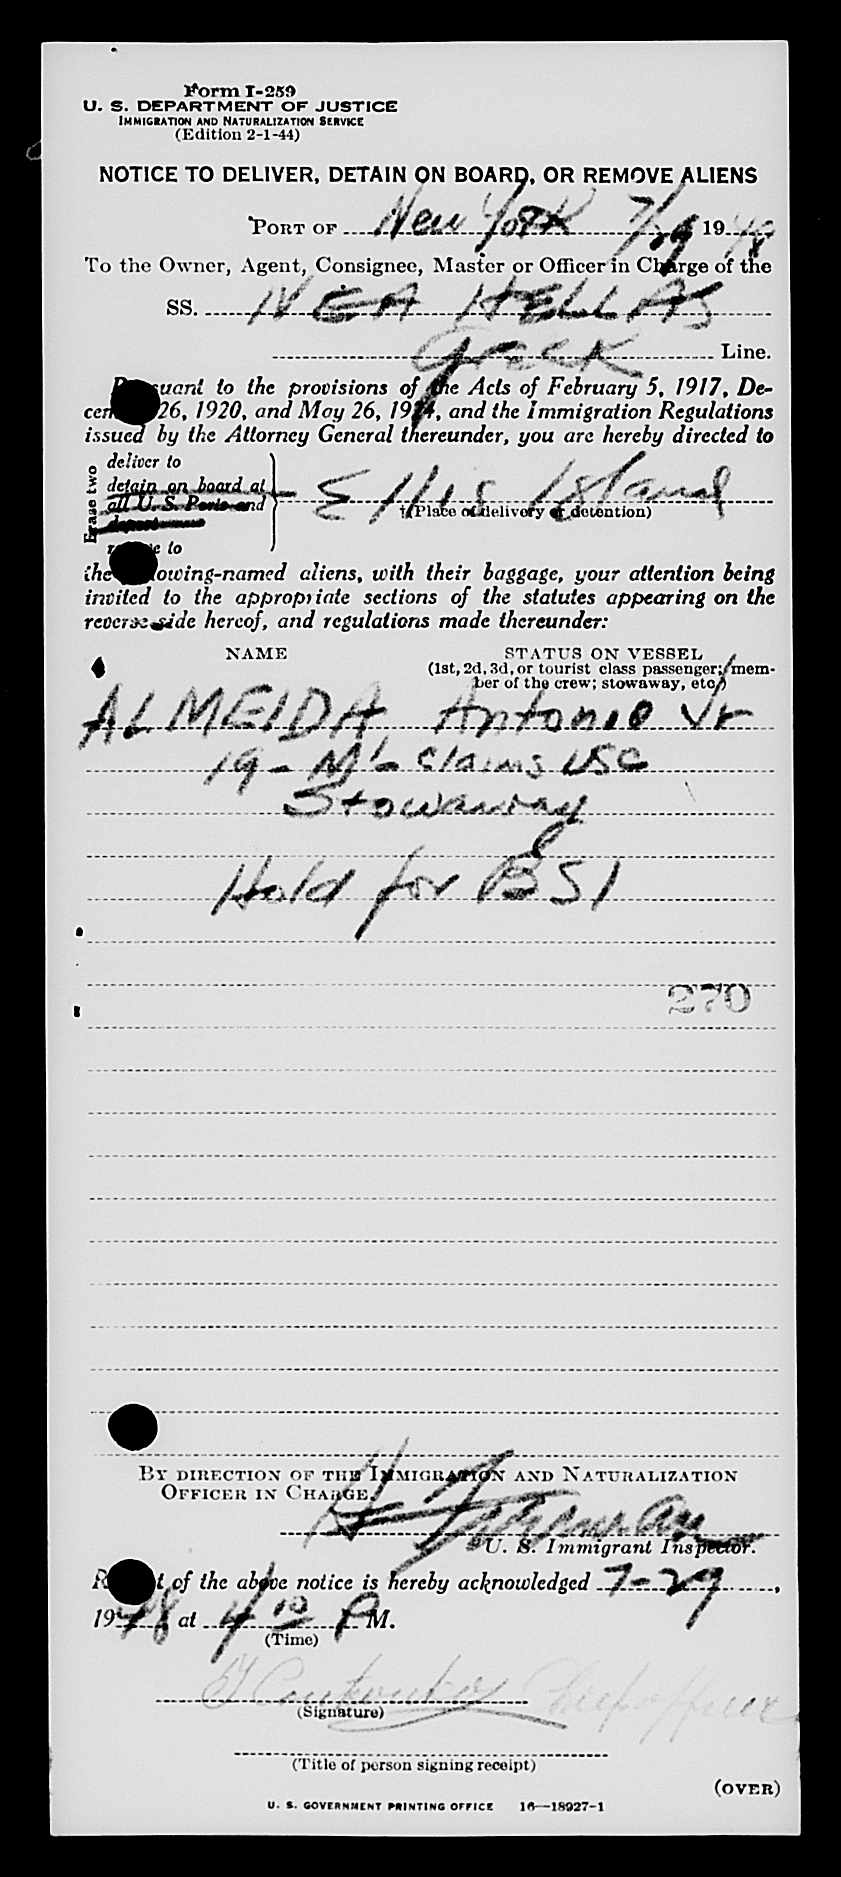 Form I-259
U. S. DEPARTMENT OF JUSTICE
IMMIGRATION AND NATURALIZATION SERVICE
(Edition 2-1-44)
NOTICE TO DELIVER, DETAIN ON BOARD, OR REMOVE ALIENS
PORT OF New York 7/29 1948
To the Owner, Agent, Consignee, Master or Officer in Charge of the
SS. NEA HELLAS
Greek Line.
Pursuant to the provisions of the Acts of February 5, 1917, De-
cem 26, 1920, and May 26, 1924, and the Immigration Regulations
issued by the Attorney General thereunder, you are hereby directed to
Erase two
deliver to
detain on board at
all U. S. Ports and
deport
remove to
Ellis Island
†(Place of delivery or detention)
the following-named aliens, with their baggage, your attention being
invited to the appropriate sections of the statutes appearing on the
reverse side hereof, and regulations made thereunder:
NAME STATUS ON VESSEL
(1st, 2d, 3d, or tourist class passenger; mem-
ber of the crew; stowaway, etc.)
ALMEIDA, Antonio Jr
19 - M - Claims USC
Stowaway
Hold for BSI
270
BY DIRECTION OF THE IMMIGRATION AND NATURALIZATION
OFFICER IN CHARGE.
H
U. S. Immigrant Inspector.
Receipt of the above notice is hereby acknowledged 7-29,
1948 at 4 10 P M.
(Time)
(Signature)
(Title of person signing receipt)
(OVER)
U. S. GOVERNMENT PRINTING OFFICE 16—18927-1